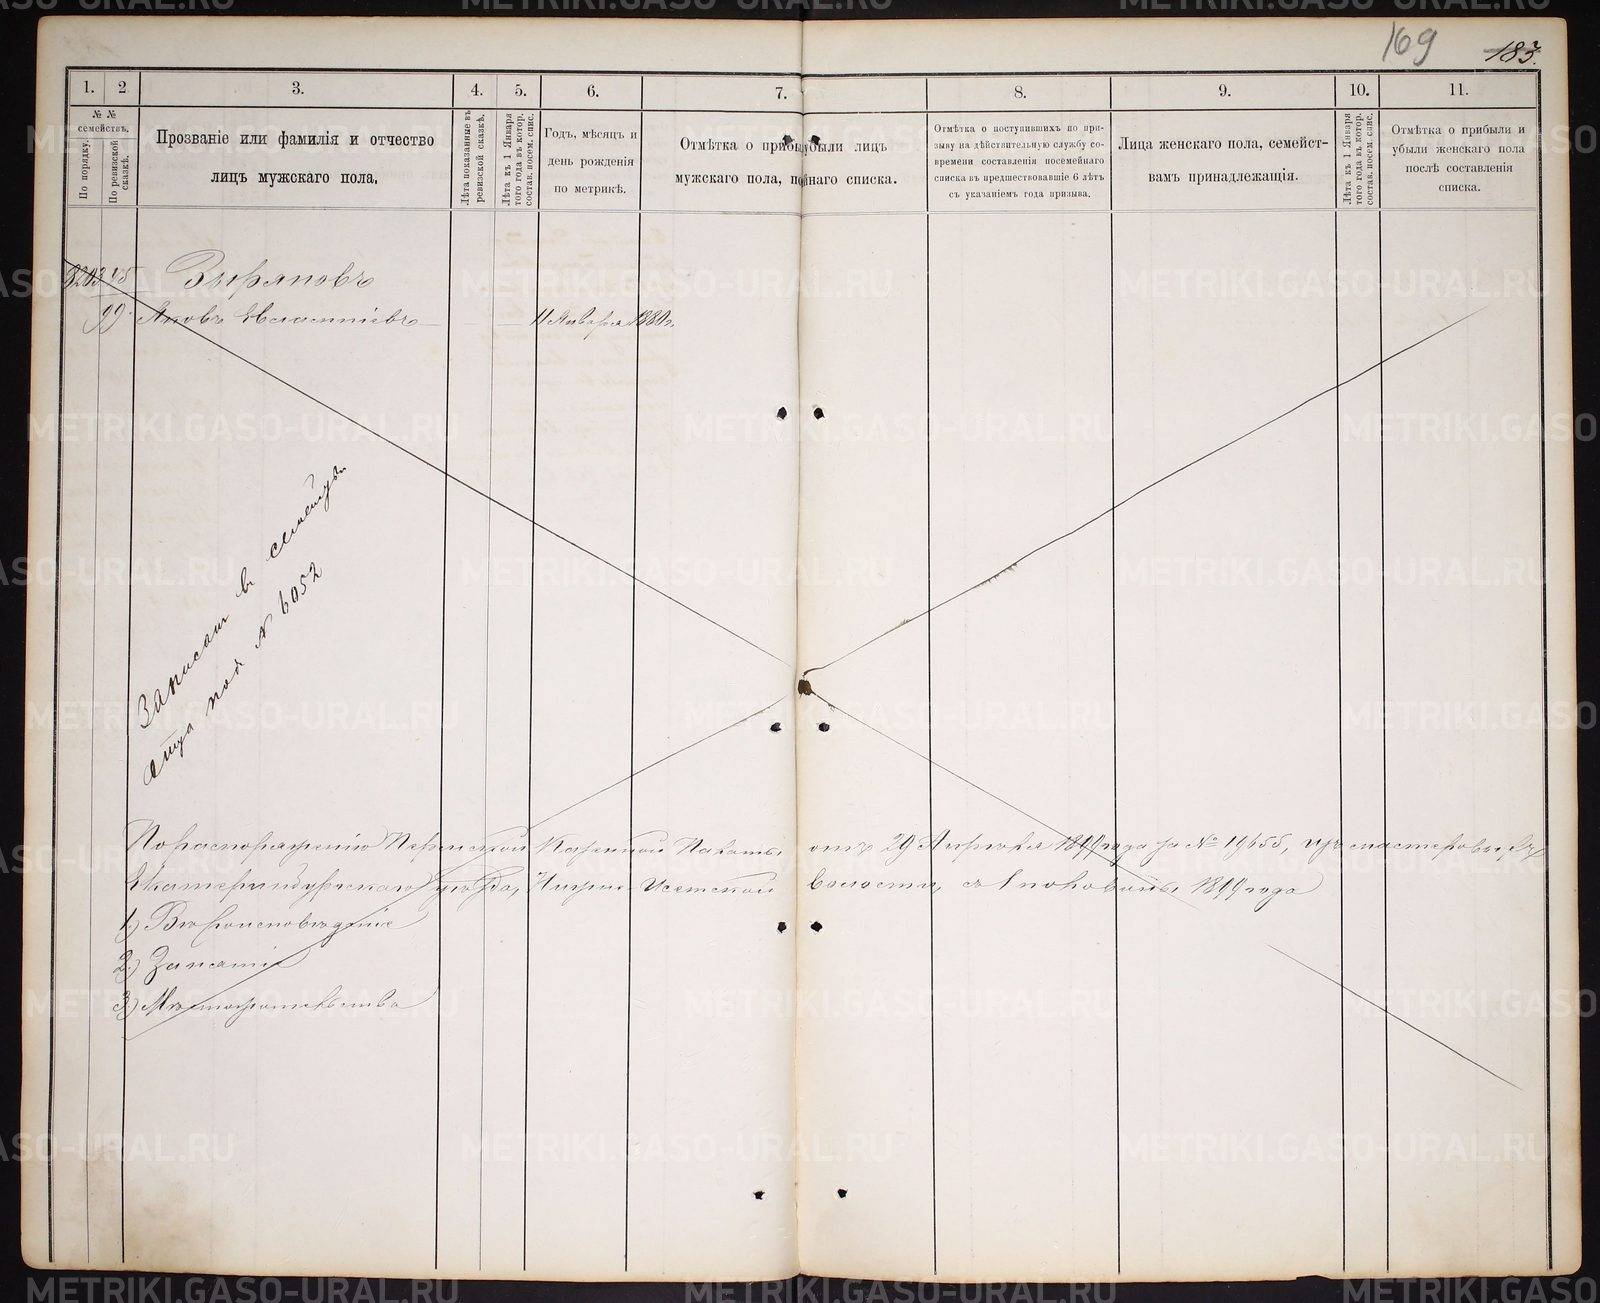 169 183.
1. 2 3. 4. 5. 6. 7. 8. 9. 10. 11.
№ № семействъ.
По порядку.
По ревизской сказкѣ.
Прозваніе или фамилія и отчество
лицъ мужскаго пола.
Лѣта показанные въ ревизской сказкѣ.
Лѣта къ 1 Января того года въ котор. состав. посем. спис.
Годъ, мѣсяцъ и
день рожденія
по метрикѣ.
Отмѣтка о приб убыли лицъ
мужскаго пола, по йнаго списка.
Отмѣтка о поступившихъ по при-
зыву на дѣйствительную службу со-
времени составленія посемейнаго
списка въ предшествовавшіе 6 лѣтъ
съ указаніемъ года призыва.
Лица женскаго пола, семейст-
вамъ принадлежащія.
Лѣта къ 1 Января того года въ котор. состав. посем. спис.
Отмѣтка о прибыли и
убыли женскаго пола
послѣ составленія
списка.
8203 Зыряновъ
99. Яковъ 11 Января
Записан в семейству
отца под № 6052
По распоряженію Пермской Казенной Палаты отъ 29 Апрѣля 1899 года за № 19655, изъ мастеровыхъ
Екатеринбургскаго уѣзда, Нижне-Исетской волости, съ 1 половины 1899 года
1.) Вѣроисповѣданіе
2.) Занятіе
3.) Мѣстожительство
METRIKI.GASO-URAL.RU